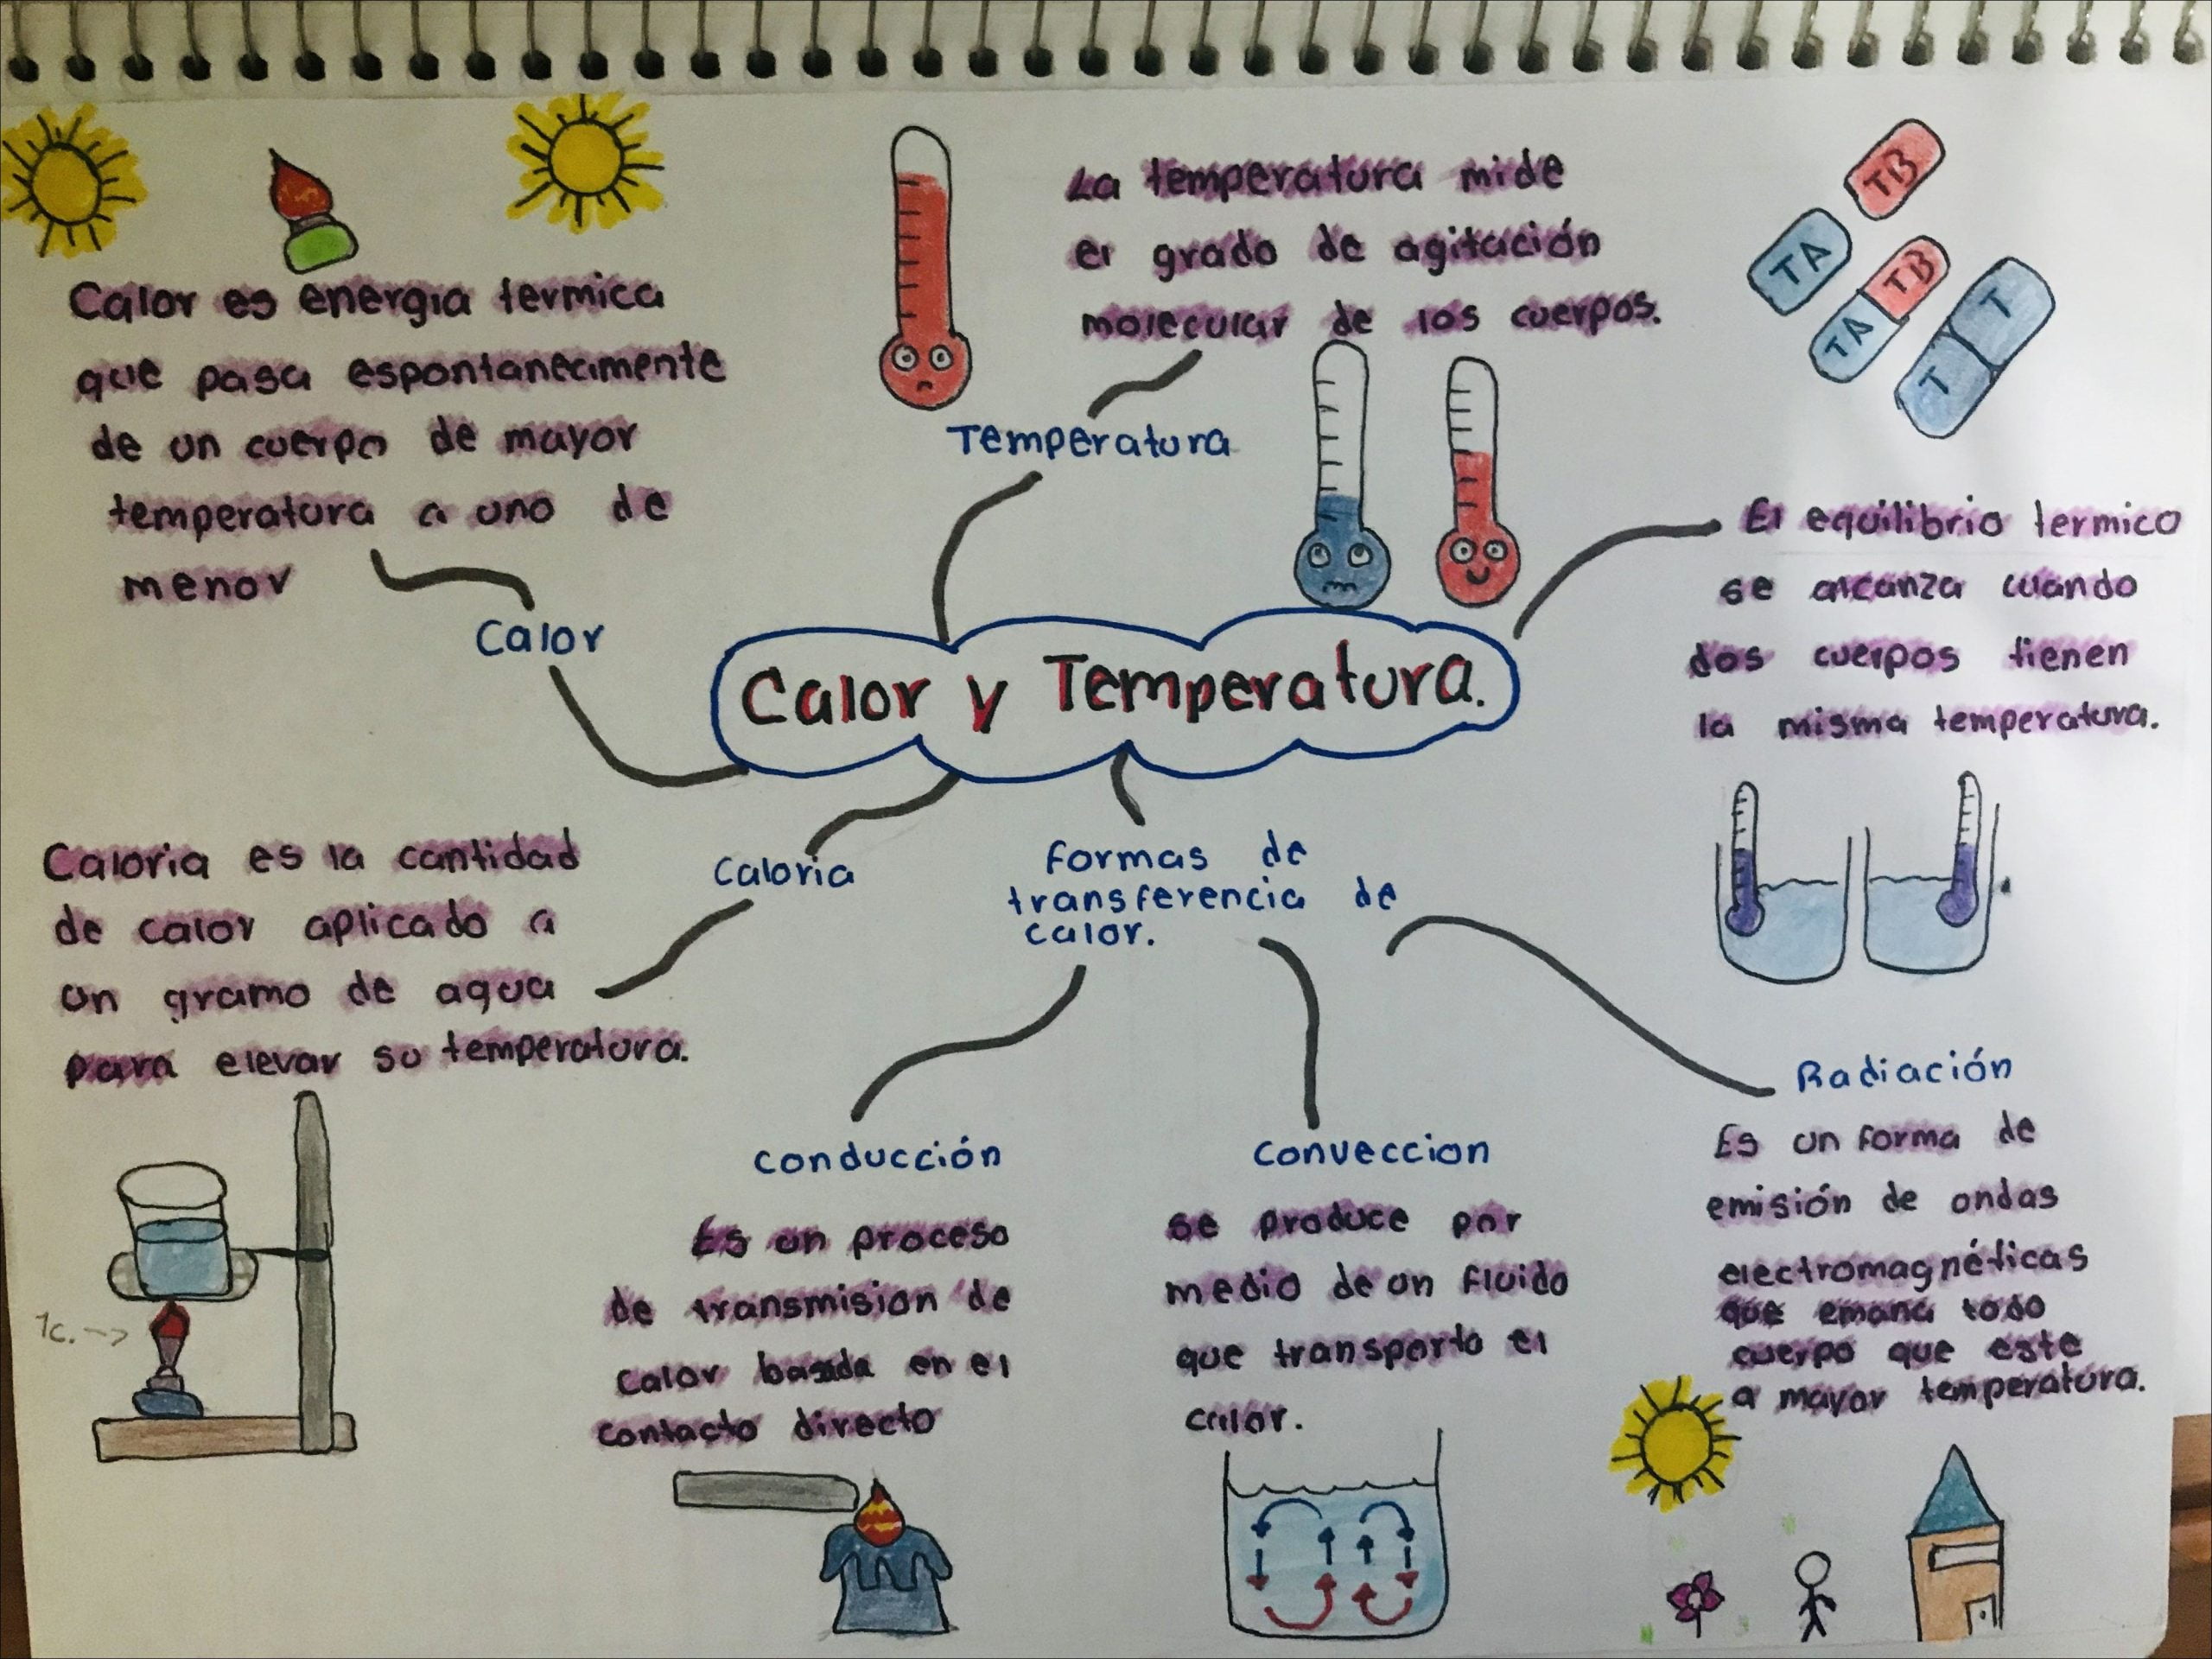 Calor es energia termica
que pasa espontaneamente
de un cuerpo de mayor
temperatura a uno de
menor
Calor
La temperatura mide
el grado de agitación
molecular de los cuerpos.
Temperatura
TB
TA
TB
TA
T
T
El equilibrio termico
se alcanza cuando
dos cuerpos tienen
la misma temperatura.
Calor y Temperatura.
Caloria es la cantidad
de calor aplicado a
un gramo de agua
para elevar su temperatura.
Caloria
1c.
formas de
transferencia de
calor.
conducción
Es un proceso
de transmision de
calor basada en el
contacto directo
Conveccion
se produce por
medio de un fluido
que transporta el
calor.
Radiación
Es un forma de
emisión de ondas
electromagnéticas
que emana todo
cuerpo que este
a mayor temperatura.